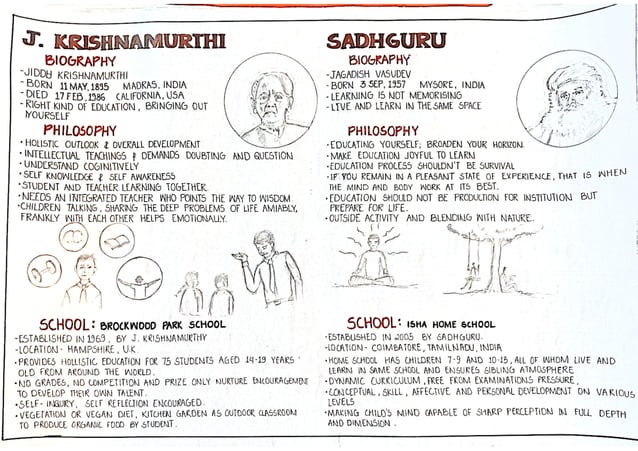 J. KRISHNAMURTHI
BIOGRAPHY
-JIDDU KRISHNAMURTHI
-BORN 11 MAY, 1895 MADRAS, INDIA
-DIED 17 FEB, 1986 CALIFORNIA, USA
-RIGHT KIND OF EDUCATION, BRINGING OUT
YOURSELF
PHILOSOPHY
•HOLISTIC OUTLOOK & OVERALL DEVELOPMENT
•INTELLECTUAL TEACHINGS & DEMANDS DOUBTING AND QUESTION
•UNDERSTAND COGINITIVELY
•SELF KNOWLEDGE & SELF AWARENESS
•STUDENT AND TEACHER LEARNING TOGETHER.
•NEEDS AN INTEGRATED TEACHER WHO POINTS THE WAY TO WISDOM.
•CHILDREN TALKING, SHARING THE DEEP PROBLEMS OF LIFE AMIABLY,
FRANKLY WITH EACH OTHER HELPS EMOTIONALLY.
SCHOOL: BROCKWOOD PARK SCHOOL
•ESTABLISHED IN 1969, BY J. KRISHNAMURTHY
•LOCATION- HAMPSHIRE, U.K.
•PROVIDES HOLLISTIC EDUCATION FOR 75 STUDENTS AGED 14-19 YEARS
OLD FROM AROUND THE WORLD.
•NO GRADES, NO COMPETITION AND PRIZE ONLY NURTURE ENCOURAGEMENT
TO DEVELOP THEIR OWN TALENT.
•SELF- INQUIRY, SELF REFLECTION ENCOURAGED.
•VEGETATION OR VEGAN DIET, KITCHEN GARDEN AS OUTDOOR CLASSROOM
TO PRODUCE ORGANIC FOOD BY STUDENT.
SADHGURU
BIOGRAPHY
-JAGADISH VASUDEV
-BORN 3 SEP, 1957 MYSORE, INDIA
-LEARNING IS NOT MEMORISING
-LIVE AND LEARN IN THE SAME SPACE
PHILOSOPHY
•EDUCATING YOURSELF, BROADEN YOUR HORIZON.
•MAKE EDUCATION JOYFUL TO LEARN
•EDUCATION PROCESS SHOULDN'T BE SURVIVAL
•IF YOU REMAIN IN A PLEASANT STATE OF EXPERIENCE, THAT IS WHEN
THE MIND AND BODY WORK AT ITS BEST.
•EDUCATION SHOULD NOT BE PRODUCTION FOR INSTITUTION BUT
PREPARE FOR LIFE.
•OUTSIDE ACTIVITY AND BLENDING WITH NATURE.
SCHOOL: ISHA HOME SCHOOL
•ESTABLISHED IN 2005 BY SADHGURU.
•LOCATION- COIMBATORE, TAMILNADU, INDIA
•HOME SCHOOL HAS CHILDREN 7-9 AND 10-13, ALL OF WHOM LIVE AND
LEARN IN SAME SCHOOL AND ENSURES SIBLING ATMOSPHERE.
•DYNAMIC CURRICULUM, FREE FROM EXAMINATIONS PRESSURE,
•CONCEPTUAL, SKILL, AFFECTIVE AND PERSONAL DEVELOPMENT ON VARIOUS
LEVELS
•MAKING CHILD'S MIND CAPABLE OF SHARP PERCEPTION IN FULL DEPTH
AND DIMENSION.